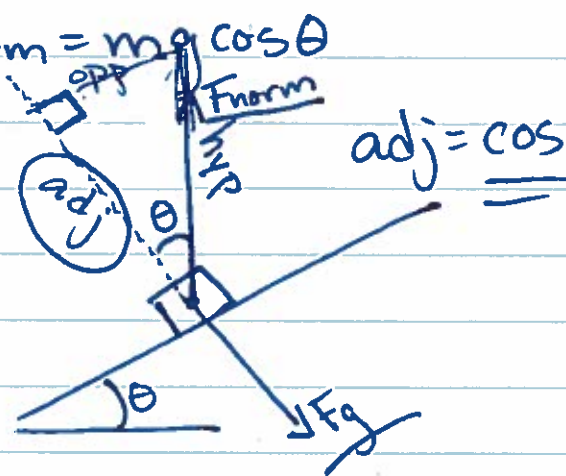 m = mg cosθ
opp
Fnorm
hyp
adj = cos
adj
θ
θ
Fg